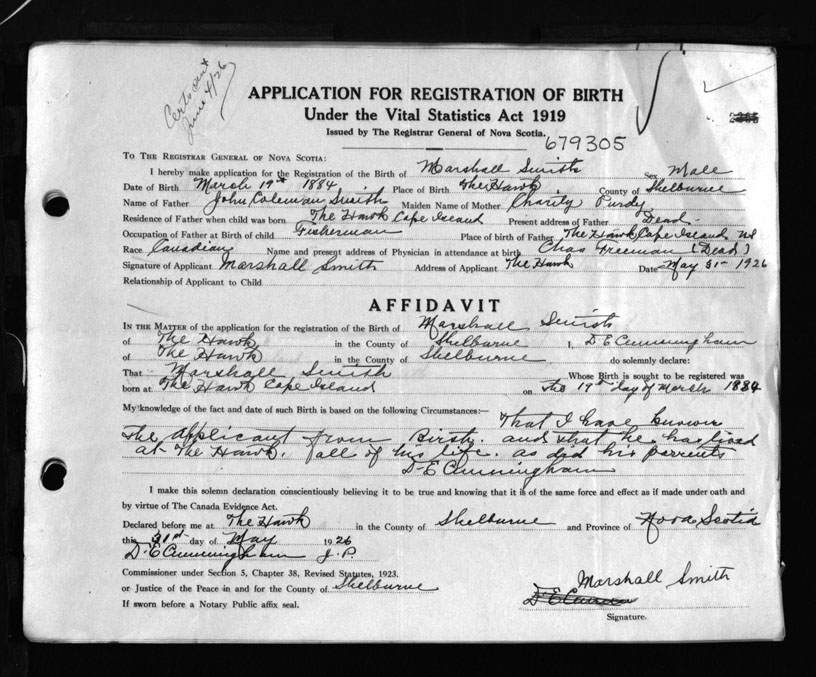 Certs sent
June 4/26
APPLICATION FOR REGISTRATION OF BIRTH
Under the Vital Statistics Act 1919
Issued by The Registrar General of Nova Scotia.
679305
TO THE REGISTRAR GENERAL OF NOVA SCOTIA:
I hereby make application for the Registration of the Birth of Marshall Smith Sex Male
Date of Birth March 19th 1884 Place of Birth The Hawk County of Shelburne
Name of Father John Coleman Smith Maiden Name of Mother Charity Purdy
Residence of Father when child was born The Hawk Cape Island Present address of Father Dead
Occupation of Father at Birth of child Fisherman Place of birth of Father The Hawk Cape Island NS
Race Canadian Name and present address of Physician in attendance at birth Chas Freeman (Dead)
Signature of Applicant Marshall Smith Address of Applicant The Hawk Date May 31 - 1926
Relationship of Applicant to Child
AFFIDAVIT
IN THE MATTER of the application for the registration of the Birth of Marshall Smith
of The Hawk in the County of Shelburne I, D E Cunningham
of The Hawk in the County of Shelburne do solemnly declare:
That Marshall Smith Whose Birth is sought to be registered was
born at The Hawk Cape Island on the 19th day of March 1884
My knowledge of the fact and date of such Birth is based on the following Circumstances:— That I have known
The Applicant from Birth. and that he has lived
at The Hawk. all of his life. as did his parrents
D E Cunningham
I make this solemn declaration conscientiously believing it to be true and knowing that it is of the same force and effect as if made under oath and
by virtue of The Canada Evidence Act.
Declared before me at The Hawk in the County of Shelburne and Province of Nova Scotia
this 31st day of May 1926
D. E Cunningham J. P.
Commissioner under Section 5, Chapter 38, Revised Statutes, 1923.
or Justice of the Peace in and for the County of Shelburne
If sworn before a Notary Public affix seal.
Marshall Smith
Signature.